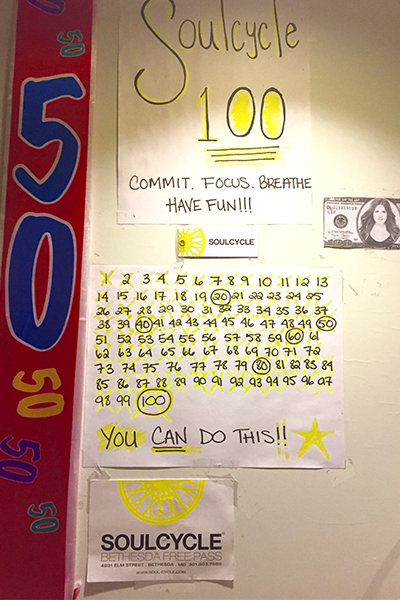 50
50
50
50
50
SOULCYCLE
100
COMMIT. FOCUS. BREATHE
HAVE FUN!!!
SOULCYCLE
1 2 3 4 5 6 7 8 9 10 11 12 13
14 15 16 17 18 19 20 21 22 23 24 25
26 27 28 29 30 31 32 33 34 35 36 37
38 39 40 41 42 43 44 45 46 47 48 49 50
51 52 53 54 55 56 57 58 59 60 61
62 63 64 65 66 67 68 69 70 71 72
73 74 75 76 77 78 79 80 81 82 83 84
85 86 87 88 89 90 91 92 93 94 95 96 97
98 99 100
YOU CAN DO THIS!!
SOULCYCLE
BETHESDA FREE PASS
4931 ELM STREET . BETHESDA . MD
WWW.SOUL-CYCLE.COM